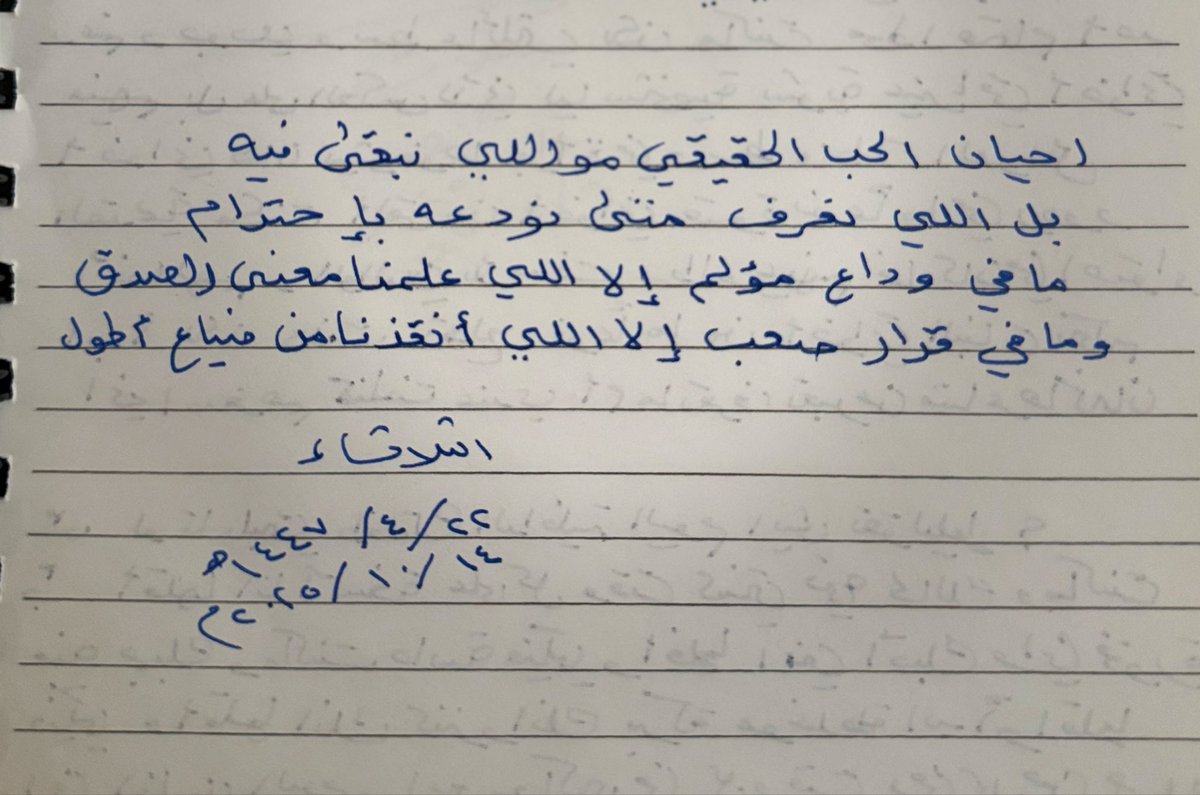 احيان الحب الحقيقي مو اللي نبقى فيه
بل اللي نعرف متى نودعه بإحترام
مافي وداع مؤلم إلا اللي علمنا معنى الصدق
وما في قرار صعب إلا اللي أنقذنا من ضياع أطول
الثلاثاء
٢٢/٤/١٤٤٧ه
١٤/١٠/٢٠٢٥م